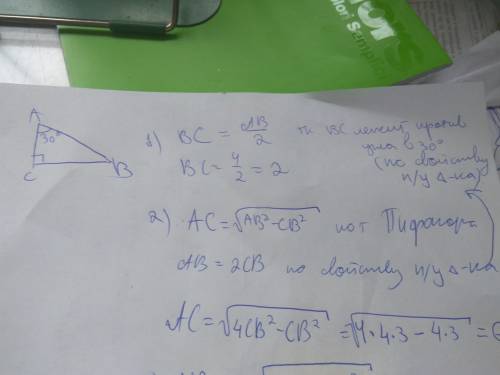 lor Sampl
A
30°
C
B
1) BC = AB/2 тк BC лежит против
угла в 30°
BC = 4/2 = 2 (по свойству
п/у Δ-ка)
2) AC = √AB²-CB² по т Пифагора
AB = 2CB по свойству п/у Δ-ка
AC = √4CB²-CB² = √4•4•3 - 4•3 =